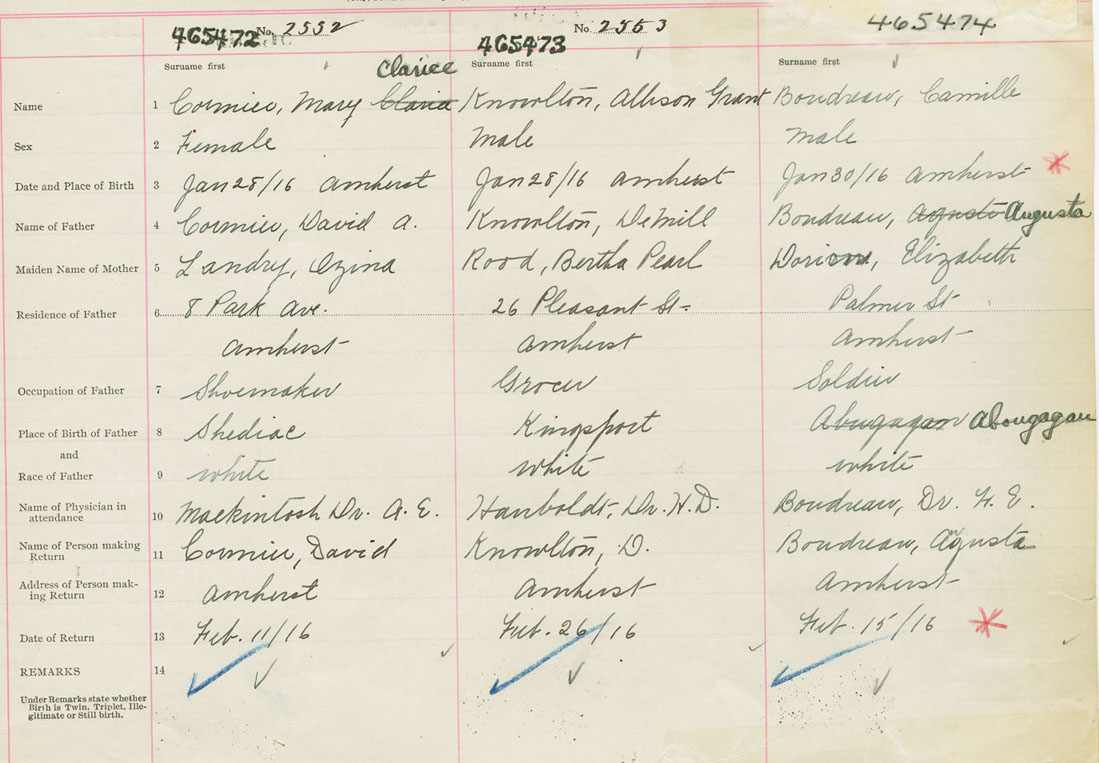 465472 No. 2552 465473 No. 2553 465474
Surname first Surname first Surname first
Clarice
Name 1 Cormier, Mary Claria Knowlton, Allison Grant Boudreau, Camille
Sex 2 Female Male Male
Date and Place of Birth 3 Jan 28/16 Amherst Jan 28/16 Amherst Jan 30/16 Amherst *
Name of Father 4 Cormier, David A. Knowlton, DeMill Boudreau, Agusta Augusta
Maiden Name of Mother 5 Landry, Ozina Rood, Bertha Pearl Elizabeth
Residence of Father 6 8 Park Ave. 26 Pleasant St. Palmer St
Amherst Amherst Amherst
Occupation of Father 7 Shoemaker Grocer Soldier
Place of Birth of Father 8 Shediac Kingsport Abugagan Abougagan
and
Race of Father 9 White White White
Name of Physician in
attendance 10 Mackintosh Dr. A. E. Dr. H. D. Boudreau, Dr. F. E.
Name of Person making
Return 11 Cormier, David Knowlton, D. Boudreau, Agusta
Address of Person mak-
ing Return 12 Amherst Amherst Amherst
Date of Return 13 Feb. 11/16 Feb. 26/16 Feb. 15/16 *
REMARKS 14
Under Remarks state whether
Birth is Twin, Triplet, Ille-
gitimate or Still birth.